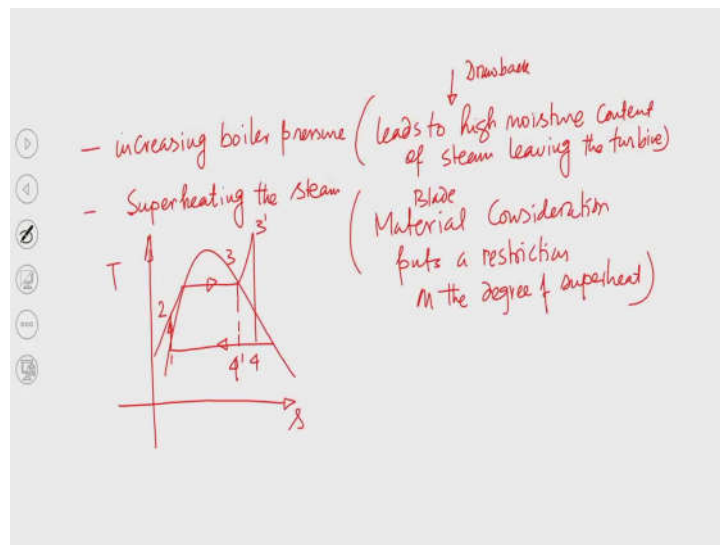 Drawback
- increasing boiler pressure (leads to high moisture content
of steam leaving the turbine)
- Superheating the steam
(Blade
Material Consideration
puts a restriction
on the degree of superheat)
3'
3
T
2
1
4' 4
s